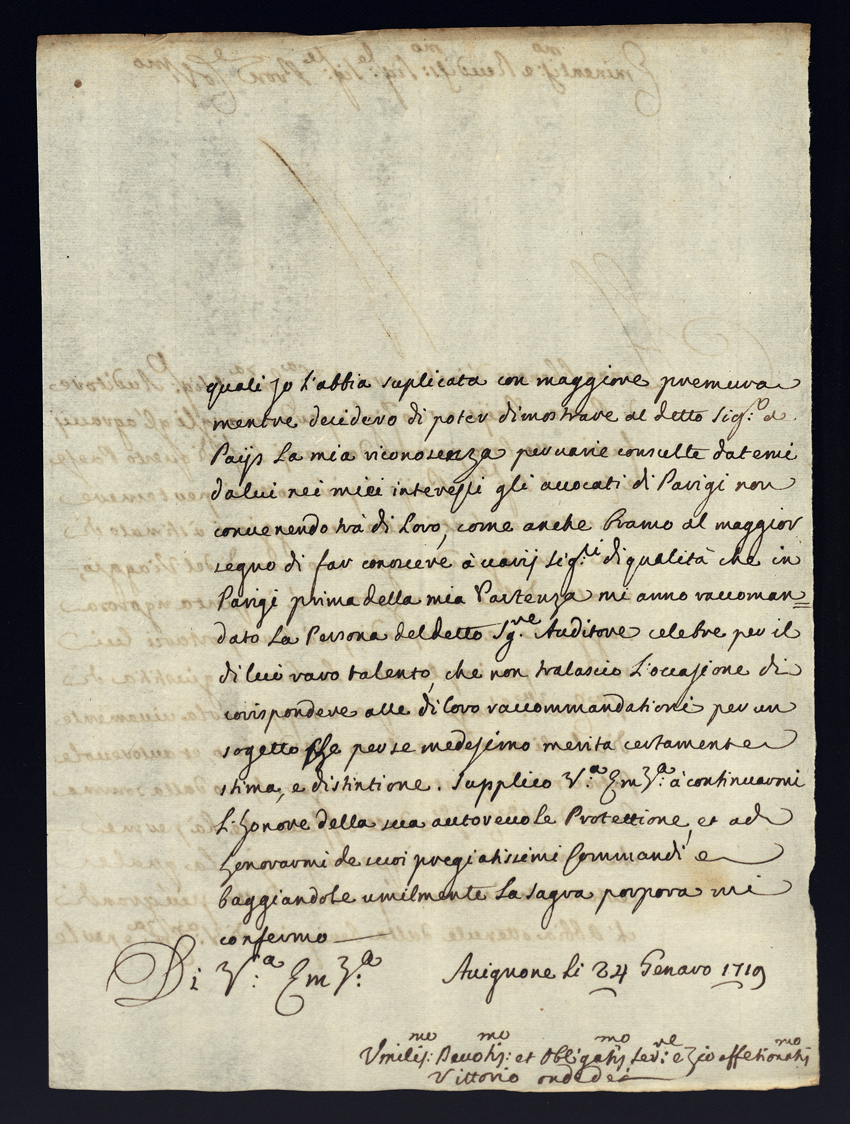 quali Jo l'abbia suplicata con maggiore premura
mentre decidero di poter dimostrare al detto Sig:ro de
Pays La mia riconoscenza per varie consulte datemi
da lui nei miei interessi gli avocati di Parigi non
convenendo trà di Loro, come anche bramo al maggior
segno di far conoscere à varij Sig:ri di qualità che in
Parigi prima della mia Partenza mi anno raccoman=
dato La Persona del detto Sg:re Auditore celebre per il
di lui raro talento, che non tralascio L'occasione di
corispondere alle di loro raccommandationi per un
sogetto che per se medesimo merita certamente
stima, e distintione. Supplico V:a Em:za à continuarmi
L'honore della sua autorevole Protettione, et ad
honorarmi de suoi pregiatissimi Commandi e
baggiandole umilmente La sagra porpora mi
confermo
Di V:a Em:za Avignone li 24 Genaro 1719
Vmilis:mo Devotis:mo et Obligatis:mo Ser:re e zio affetionatis:mo
Vittorio ondedei